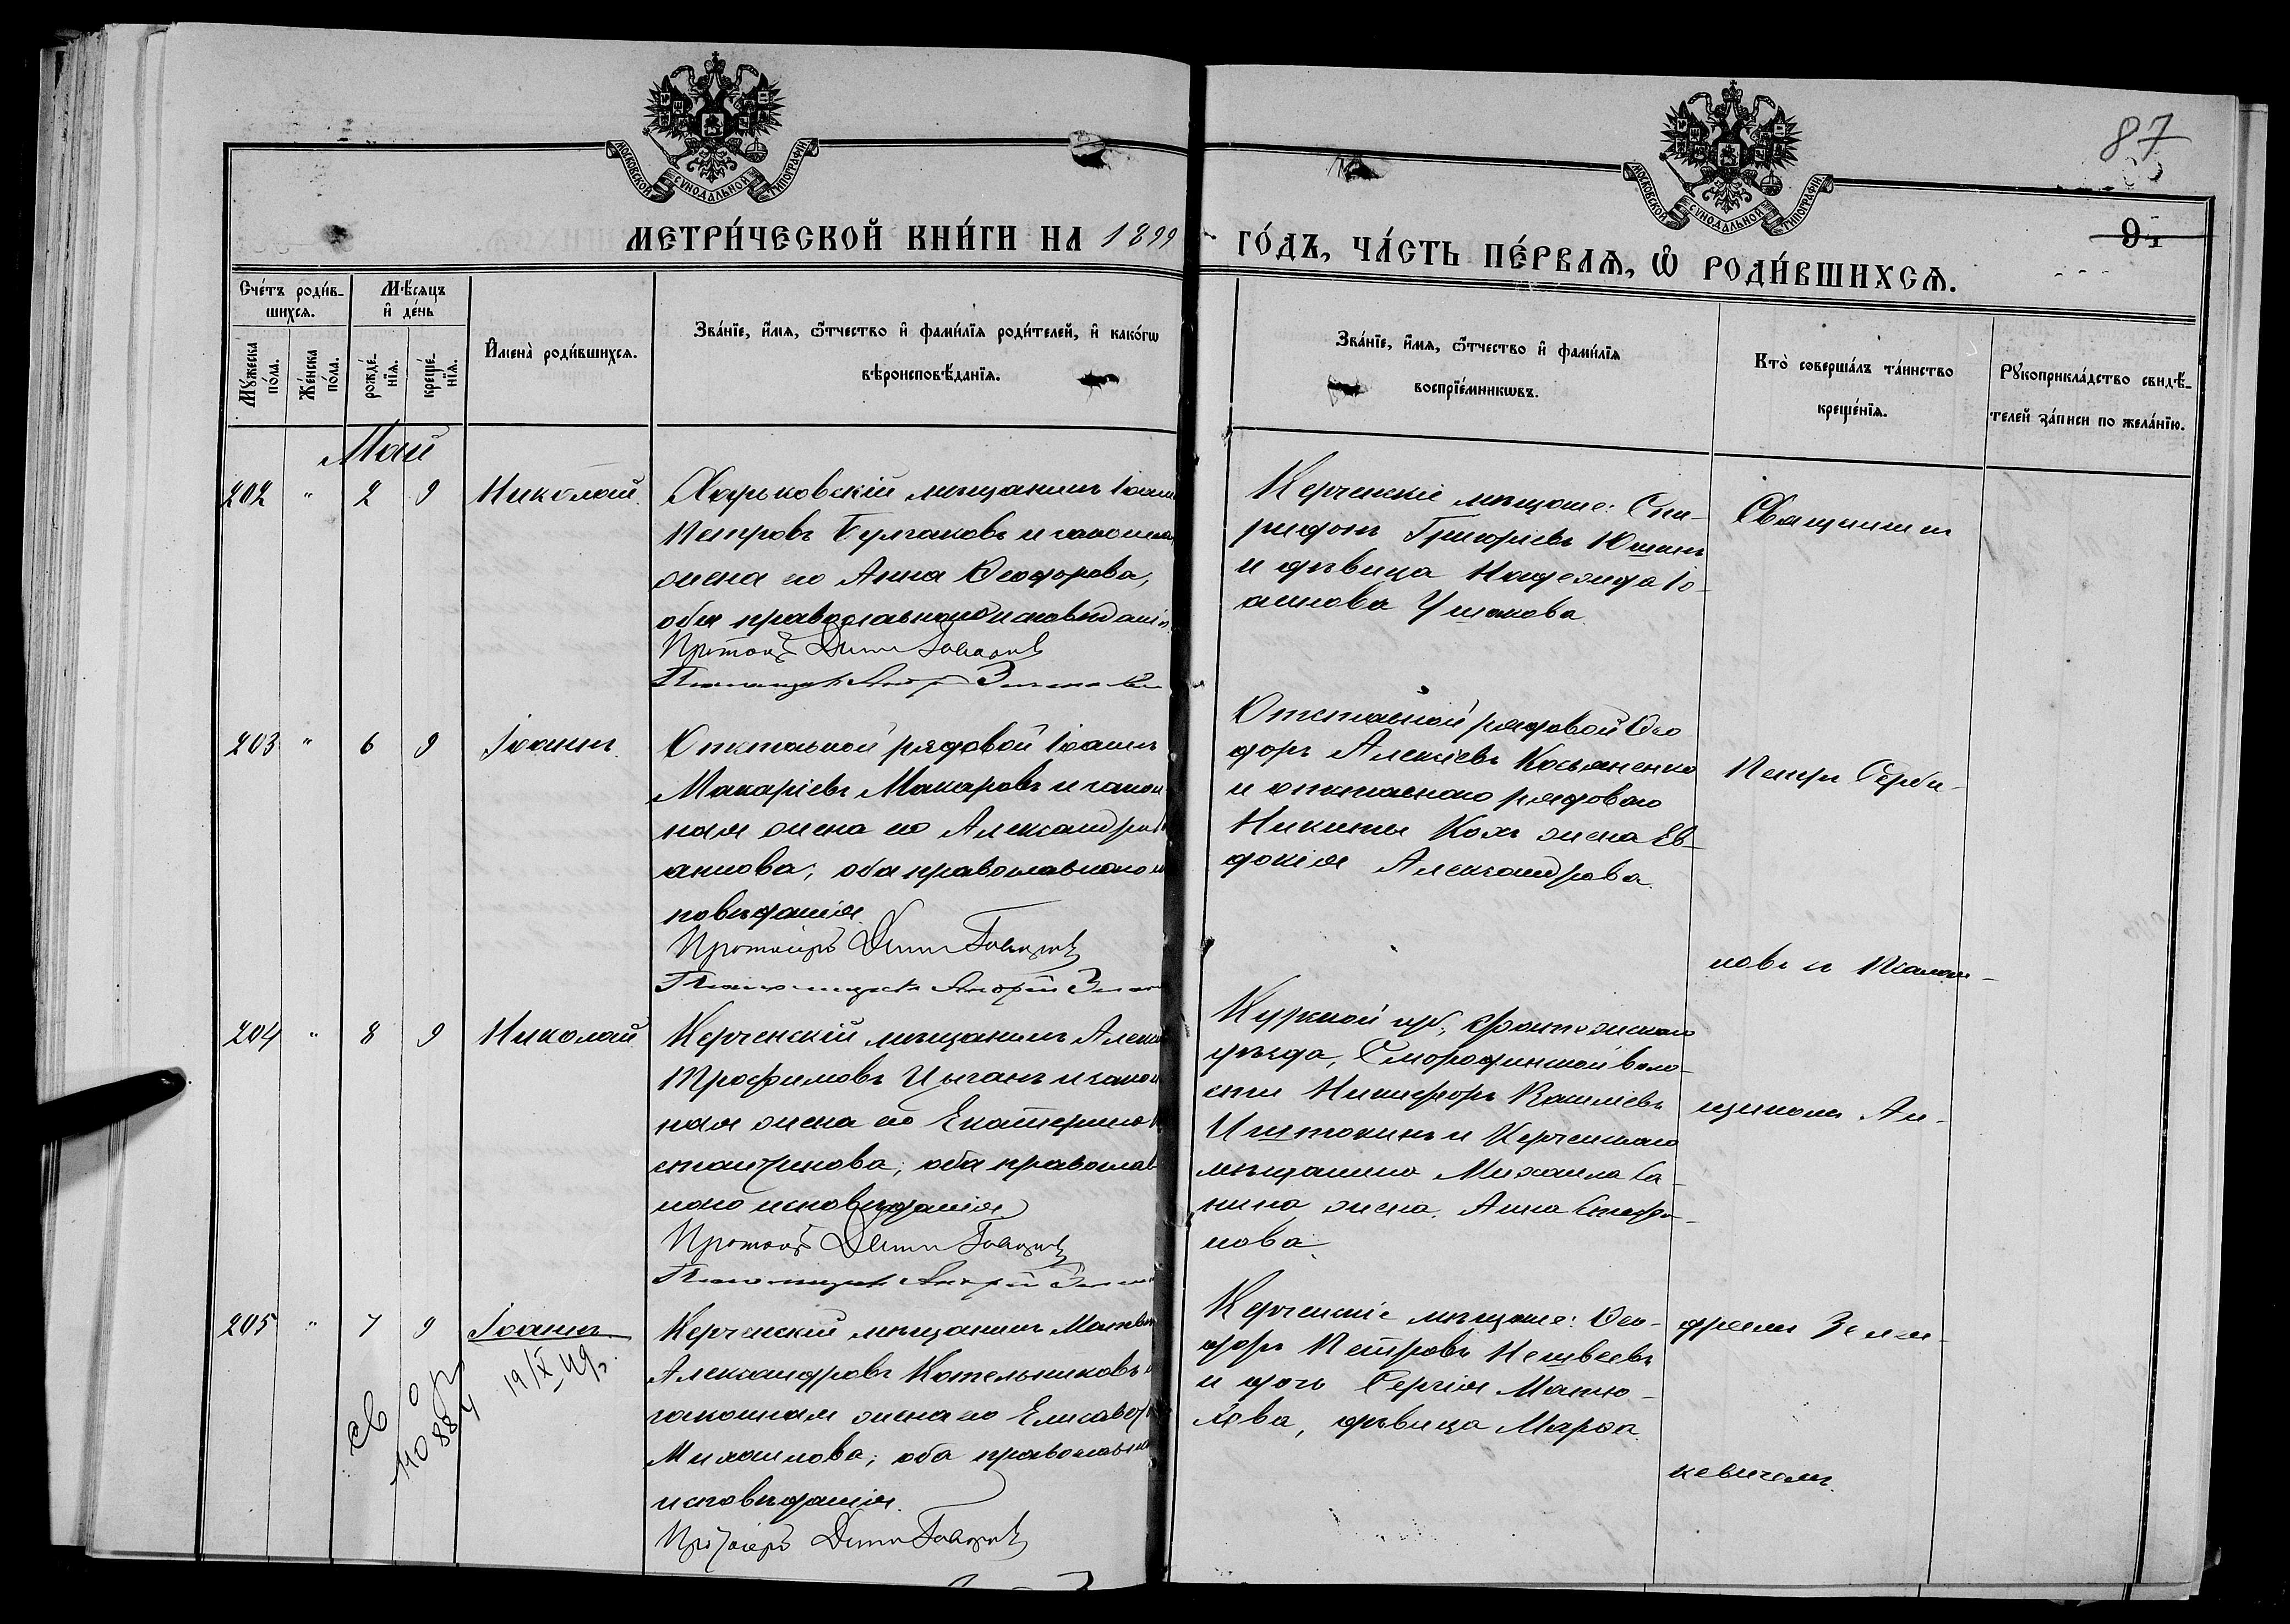 87
91
МОСКОВСКОЙ СУНОДАЛЬНОЙ ТИПОГРАФІИ
МОСКОВСКОЙ СУНОДАЛЬНОЙ ТИПОГРАФІИ
МЕТРИ́ЧЕСКОЙ КНИ́ГИ НА 1899 ГО́ДЪ, ЧА́СТЬ ПЕ́РВАѦ, Ѽ РОДИ́ВШИХСѦ.
Сче́тъ роди́в-
шихсѧ.
Мꙋ́жеска
по́ла.
Же́нска
по́ла.
Мѣ́сяцъ
и҆ де́нь
рожде́-
нїѧ.
креще́-
нїѧ.
И҆мена̀ роди́вшихсѧ.
Зва́нїе, и҆́мѧ, ѻ҆́тчество и҆ фами́лїѧ роди́телей, и҆ како́гѡ
вѣроисповѣ́данїѧ.
Зва́нїе, и҆́мѧ, ѻ҆́тчество и҆ фами́лїѧ
воспрїе́мникѡвъ.
Кто̀ соверша́лъ та́инство
креще́нїѧ.
Рꙋкоприкла́дство свидѣ́-
телей за́писи по жела́нїю.
Май
202 " 2 9 Николай
Харьковскій мѣщанинъ Іоаннъ
Петровъ Булгаковъ и законная
жена его Анна Ѳеодорова,
оба православнаго исповѣданія.
Протоіер
Керченскіе мѣщане: Спи-
ридонъ Григорьевъ Юшинъ
и дѣвица Надежда Іо-
аннова Ушакова.
Священникъ
203 " 6 9 Іоаннъ.
Отставной рядовой Іоаннъ
Макаріевъ Макаровъ и закон
ная жена его Александра І
аннова, оба православнаго и
повѣданія.
Протоіерей
Отставной рядовой Ѳео
доръ Алексіевъ Косьяненко
и отставнаго рядоваго
Никиты Кохъ жена Ев-
докія Александрова.
Петръ Серби-
новъ и Псалом-
204 " 8 9 Николай
Керченскій мѣщанинъ Алекс
Трофимовъ Цыганъ и закон
ная жена его Екатерина К
стантинова, оба православ
наго исповѣданія
Протоіер
Курской губ., Фатежскаго
уѣзда, Смородинской воло-
сти Никифоръ Василіевъ
Иштокинъ и Керченскаго
мѣщанина Михаила Са-
нина жена, Анна Стефа-
нова.
щикомъ Ан-
205 " 7 9 Іоаннъ
Керченскій мѣщанинъ Матвѣй
Александровъ Котельниковъ и
законная жена его Елисавета
Михаилова, оба православна
исповѣданія.
Протоіерей
Керченскіе мѣщане: Ѳео-
доръ Петровъ Нешвеевъ
и дочь Сергія Матю-
хова, дѣвица Марѳа.
дреемъ Земке-
кевичемъ.
19/X 49г.
св
110884